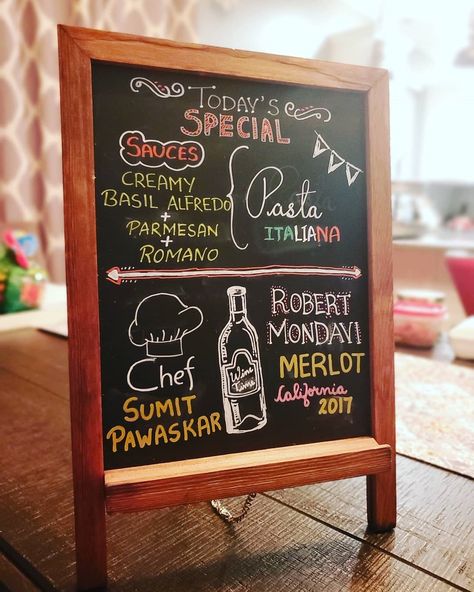 TODAY'S
SPECIAL
SAUCES
CREAMY
BASIL ALFREDO
+
PARMESAN
+
ROMANO
Pasta
ITALIANA
Chef
SUMIT
PAWASKAR
Wine
Time
ROBERT
MONDAVI
MERLOT
California
2017